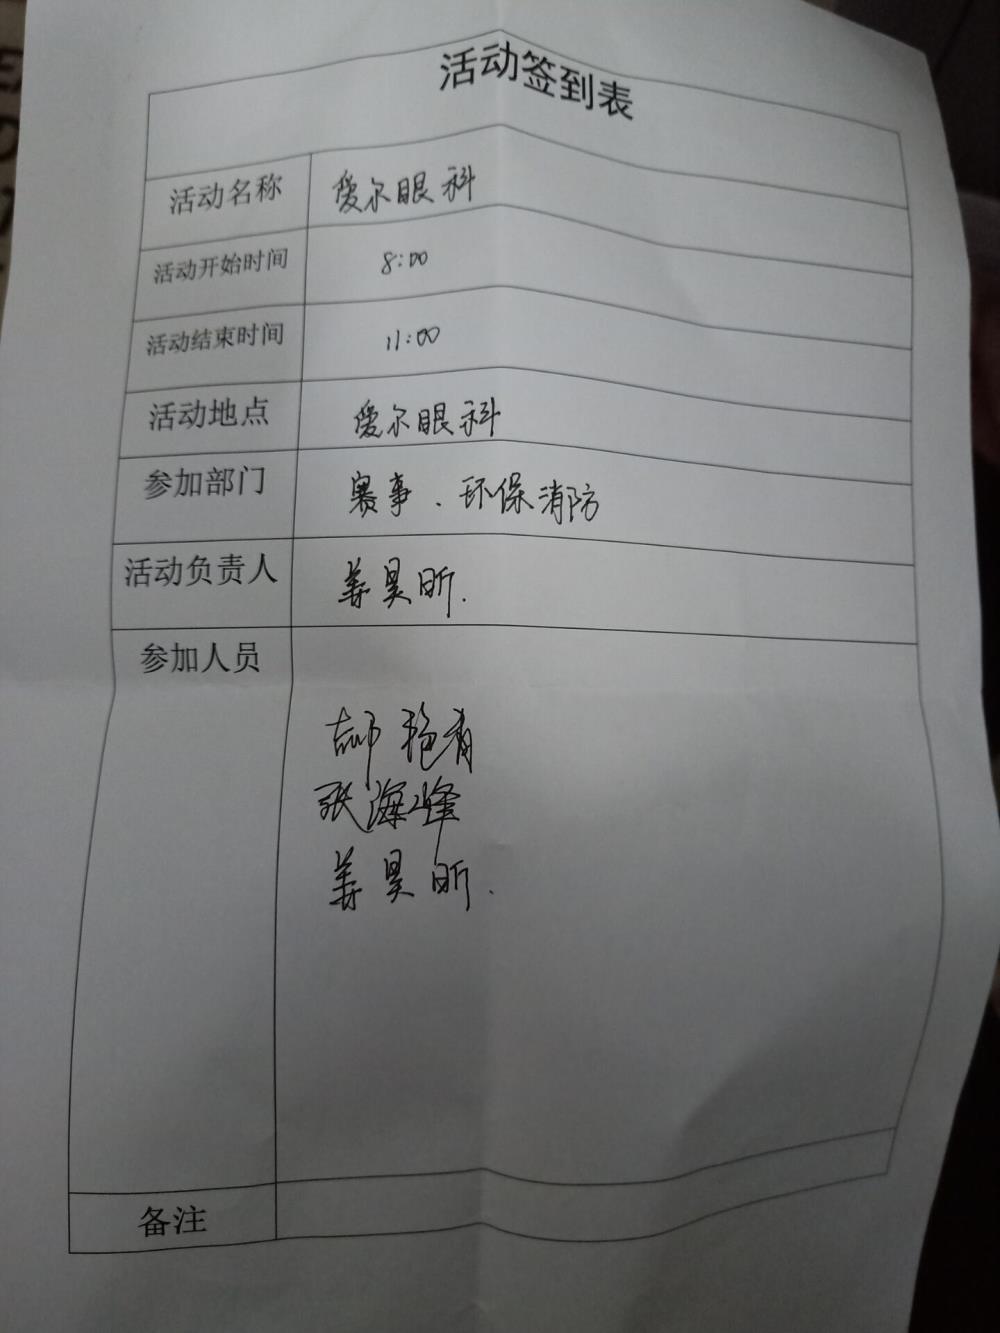 活动签到表
活动名称 爱尔眼科
活动开始时间 8:00
活动结束时间 11:00
活动地点 爱尔眼科
参加部门 赛事、环保消防
活动负责人 姜昊昕.
参加人员
郝艳有
张海峰
姜昊昕.
备注